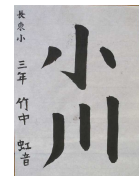 小川
長東小 三年 竹中 虹音